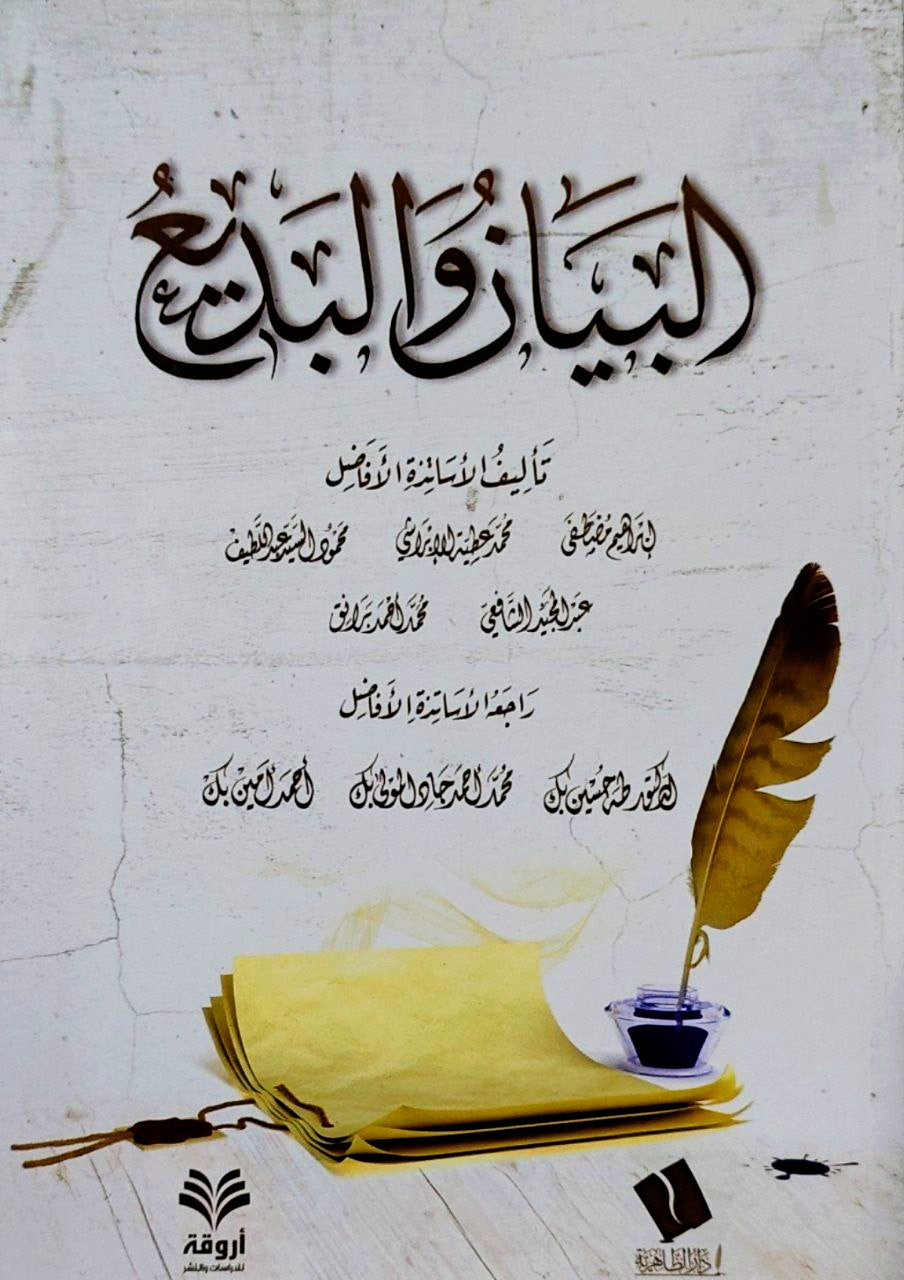 البَيَانُ وَالبَدِيعُ
تَأليفُ الأسَاتِذَةِ الأَفَاضِل
إبْرَاهِيم مُصْطَفَى مُحَمَّد عَطِيّة الإبْرَاشِي مَحْمُود السَّيِّد عَبد اللَّطِيف
عَبْد المَجِيْد الشَّافِعِي مُحَمَّد أحْمَد بَرَانِق
رَاجَعَهُ الأسَاتِذَة الأَفَاضِل
الدكتور طه حُسَيْن بَك مُحَمَّد أحمَد جَاد المَوْلَى بَك أحْمَد أمِين بَك
أروقة
للدراسات والنشر
دَارُ الظَّاهِرِيَّة